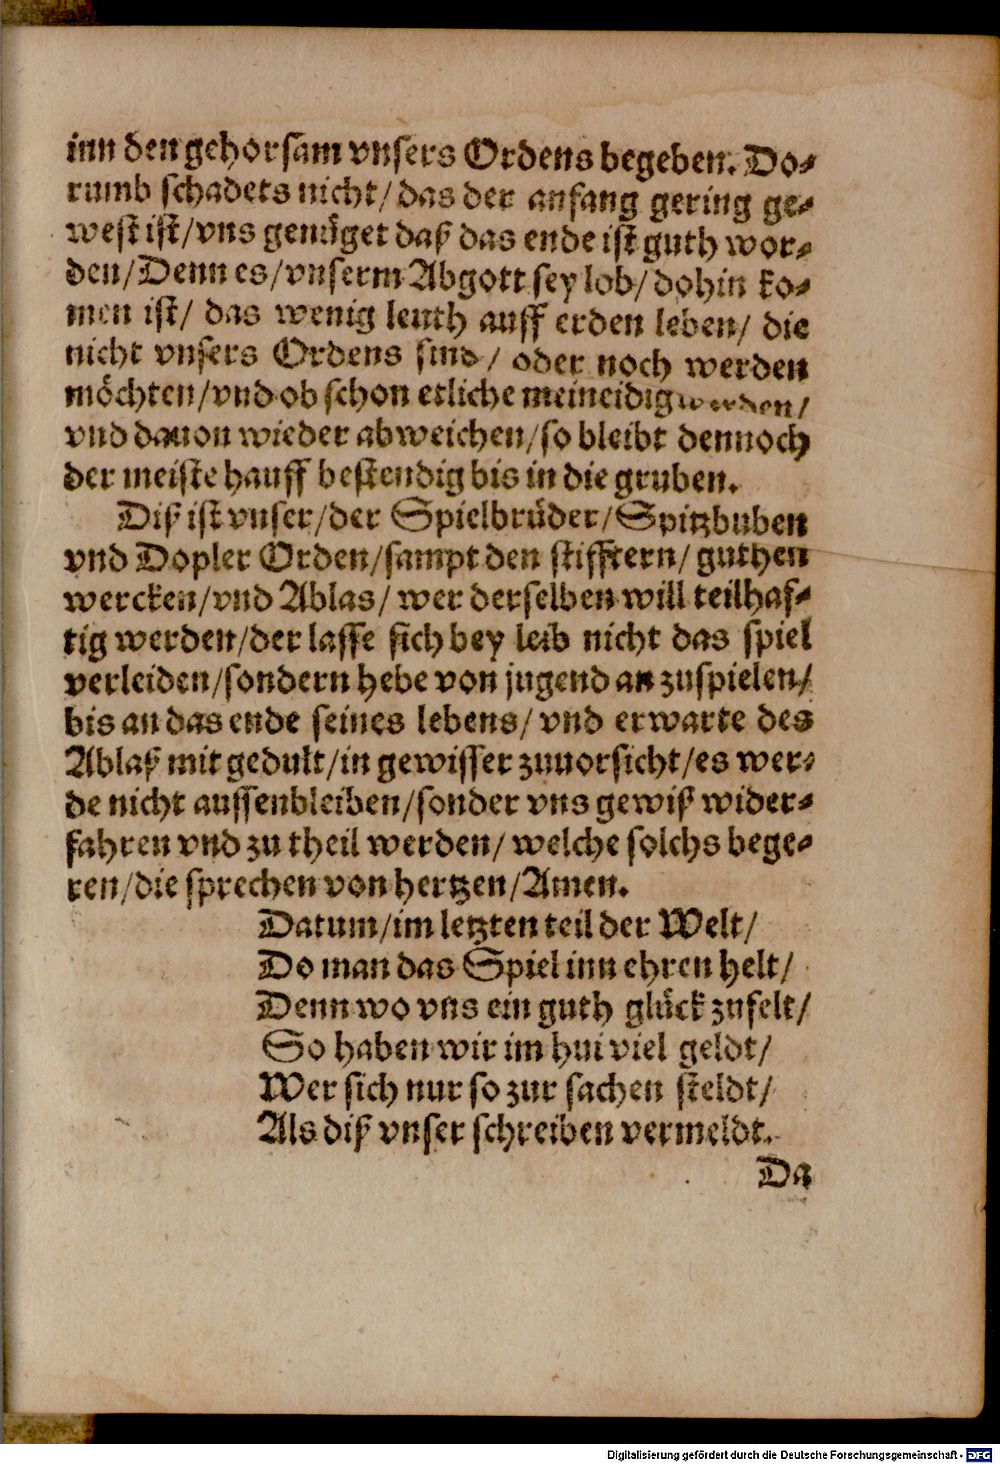 inn den gehorsam vnsers Ordens begeben. Do⸗
rumb schadets nicht/ das der anfang gering ge⸗
west ist/vns genüget daß das ende ist guth wor⸗
den/Denn es/vnserm Abgott sey lob/dohin ko⸗
men ist/ das wenig leuth auff erden leben/ die
nicht vnsers Ordens sind/ oder noch werden
möchten/vnd ob schon etliche meineidig werden/
vnd dauon wieder abweichen/so bleibt dennoch
der meiste hauff bestendig bis in die gruben.
Diß ist vnser/der Spielbrüder/Spitzbuben
vnd Dopler Orden/sampt den stifftern/ guthen
wercken/vnd Ablas/ wer derselben will teilhaf⸗
tig werden/der lasse sich bey leib nicht das spiel
verleiden/sondern hebe von jugend an zuspielen/
bis an das ende seines lebens/ vnd erwarte des
Ablaß mit gedult/in gewisser zuuorsicht/es wer⸗
de nicht aussenbleiben/sonder vns gewiß wider⸗
fahren vnd zu theil werden/ welche solchs bege⸗
ren/die sprechen von hertzen/Amen.
Datum/im letzten teil der Welt/
Do man das Spiel inn ehren helt/
Denn wo vns ein guth glück zufelt/
So haben wir im hui viel geldt/
Wer sich nur so zur sachen steldt/
Als diß vnser schreiben vermeldt.
Da
Digitalisierung gefördert durch die Deutsche Forschungsgemeinschaft - DFG